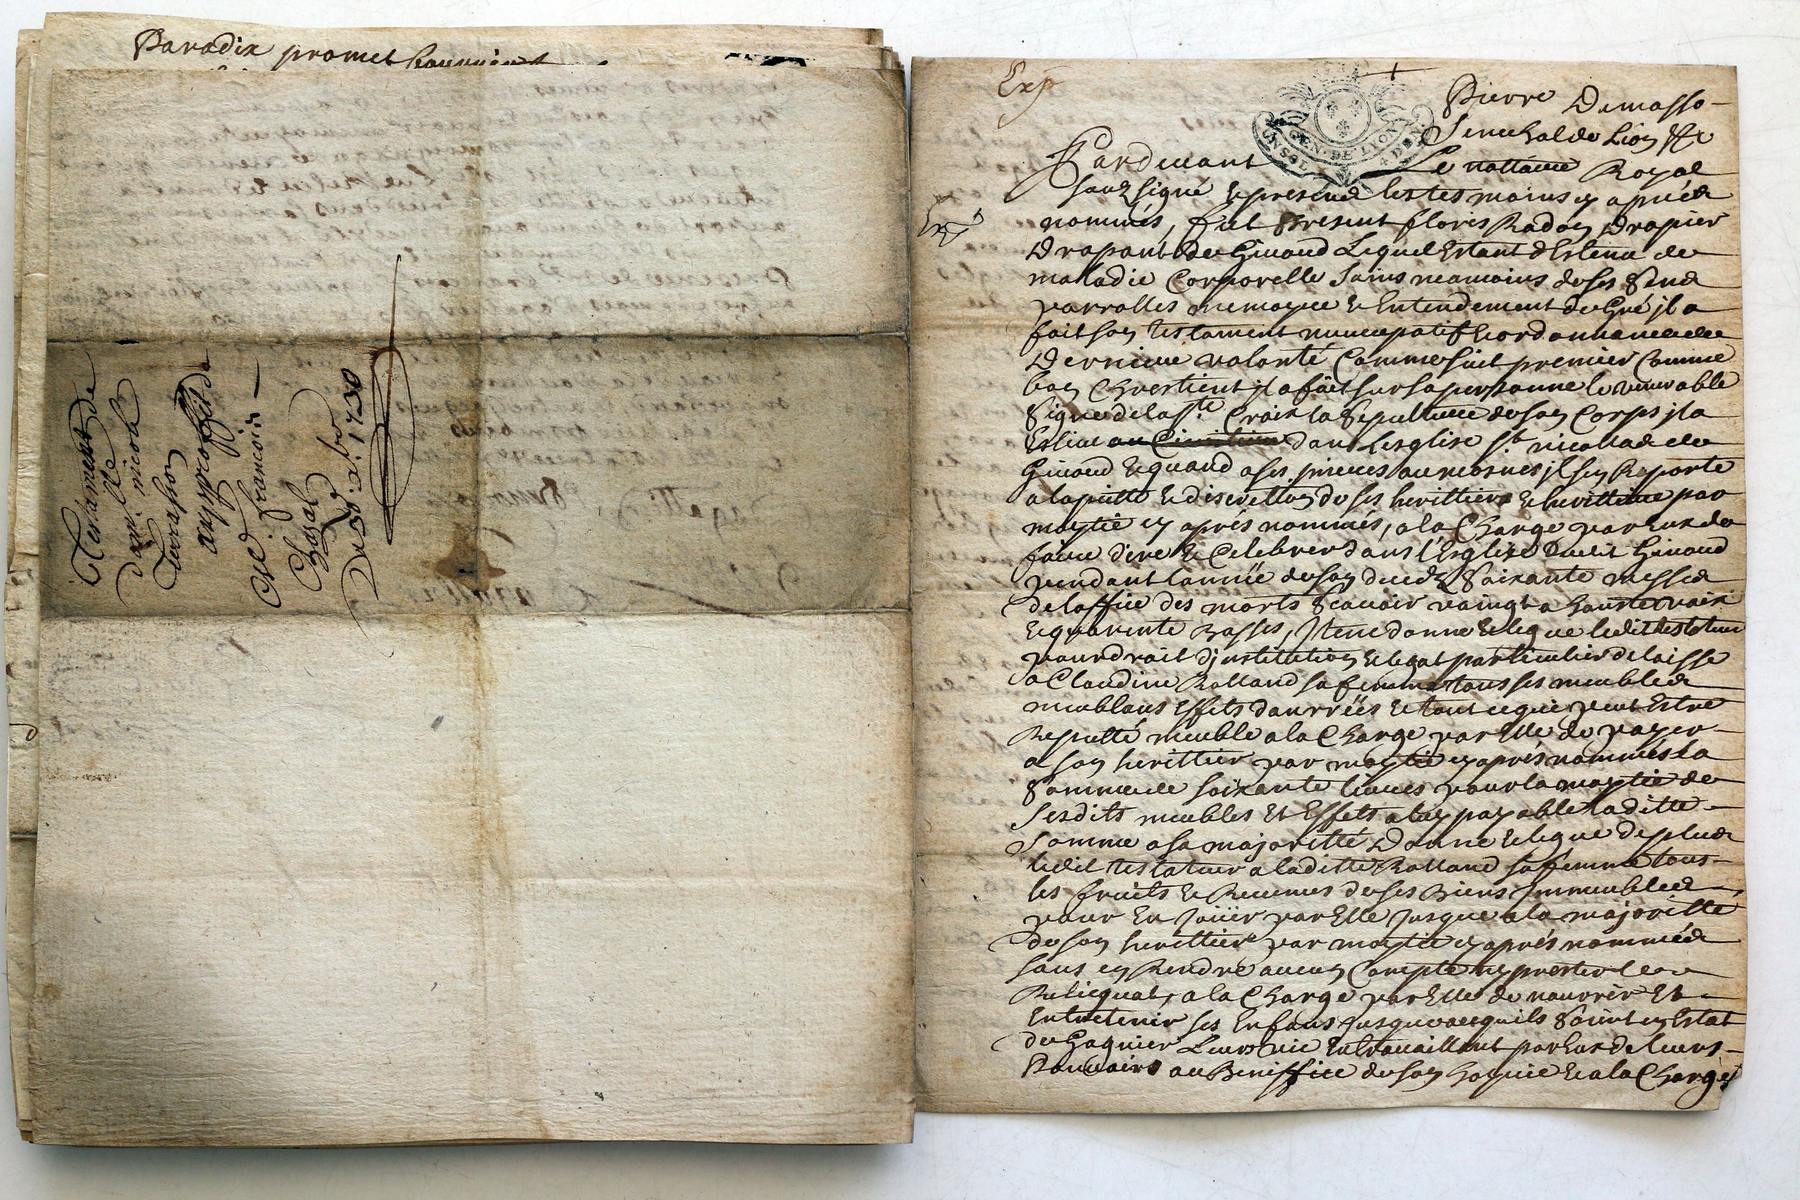 Paradix promet
Testament de
dam.lle nicole
Terrasson
au proffit de
Me francois
Chazal
Du 30 xbre 1730
Exp
Pierre Demasso
Seneschal de Lion &c
GEN. DE LYON
Pardevant Le nottaire Royal
souzsigné & presend les tesmoins cy aprés
nommés, fut Present floris Radon Drapier
Drapant de Giuord Lequel Estant detenu de
maladie Corporelle Sains neamoins de ses Send
parrolles memoyre & Entendement de Gré jl a
fait son testament nuncupatif & ordonnance de
Derniere volonté Comme suit premier Comme
bon Chrestient jl a fait sur sa personne le venerable
Signe de la ste Croix la Sepulture de son Corps jl a
Esliue dans lesglise st nicollas de
Giuord & quand a ses prieres aumosnes jl sen Rapporte
a la pietté & discrettion de ses herittiers & herittiere par
moytié cy aprés nommés, a la Charge par Eux de
faire dire & Celebrer dans l'Esglise dudit Giuord
pendant lannée de son decedz Soixante messes
de loffice des morts Scauoir vaingt a haute voix
& quarente Basses, Item donne & legue ledit testateur
par droit d'institution & legat particulier delaisse
a Claudine Rolland sa femme tous ses meubles
meublans Effets danrrées & tout ce que peut Estre
Reputté meuble a la Charge par Elle de payer
a son herittier par moytié cy aprés nommés la
Somme de soixante liures pour la moytié de
Sesdits meubles Et Effets a luy payable laditte
Somme a sa majoritté Donne & legue de plus
ledit testateur a laditte Rolland sa femme tous
les fruits & Reuenus de ses Biens Immeubles
pour En Joüir par Elle Jusque a la majoritté
de son herittier par moytié cy aprés nommés
sans en Rendre aucun Compte ny prester le
Relicquat, a la Charge par Elle de nourrir Et
Entretenir ses Enfans jusqu'a ce quils Soient en Estat
de Gagnier Leur vie En trauaillant par Eux de leurs
Pouuoirs au Beniffice de son hoyrie & a la Charge